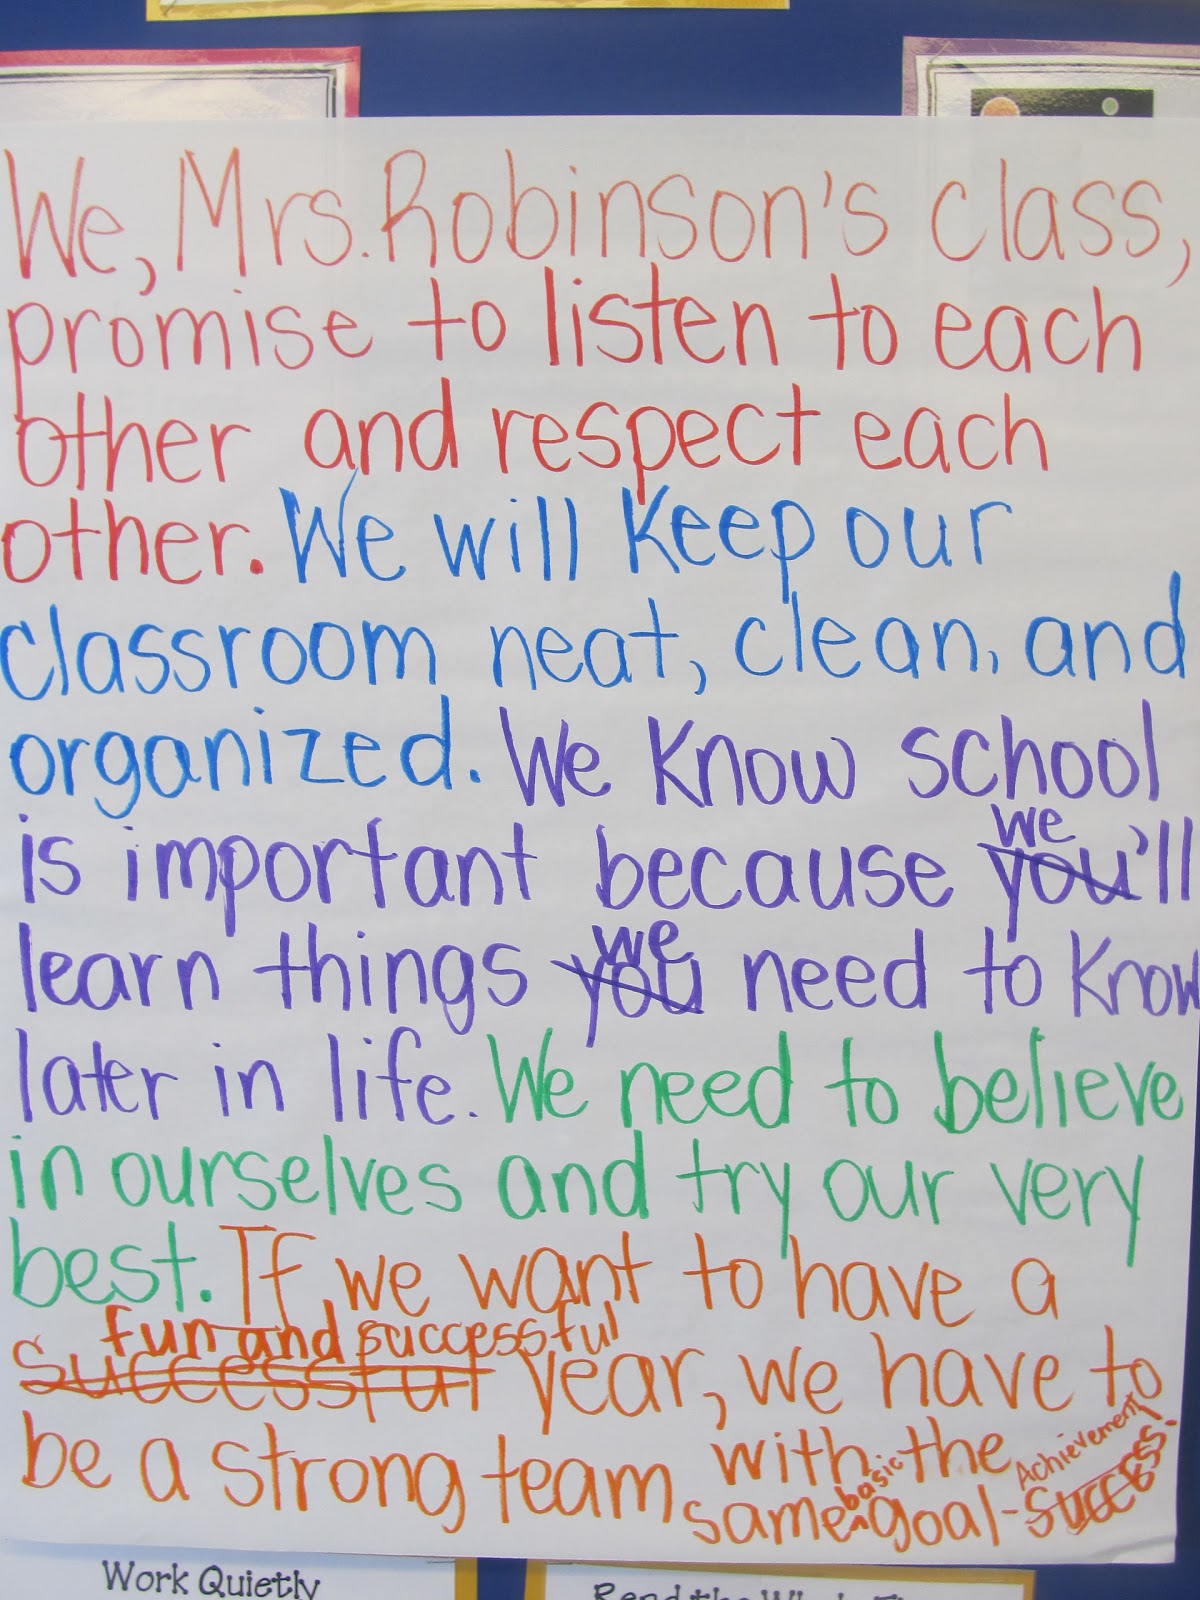 We, Mrs. Robinson's class,
promise to listen to each
other and respect each
other. We will keep our
classroom neat, clean, and
organized. We know school
we
is important because you'll
we
learn things you need to know
later in life. We need to believe
in ourselves and try our very
best. If we want to have a
fun and successful
successful year, we have to
be a strong team with the
same basic goal - success!
Achievement
Work Quietly
Read the